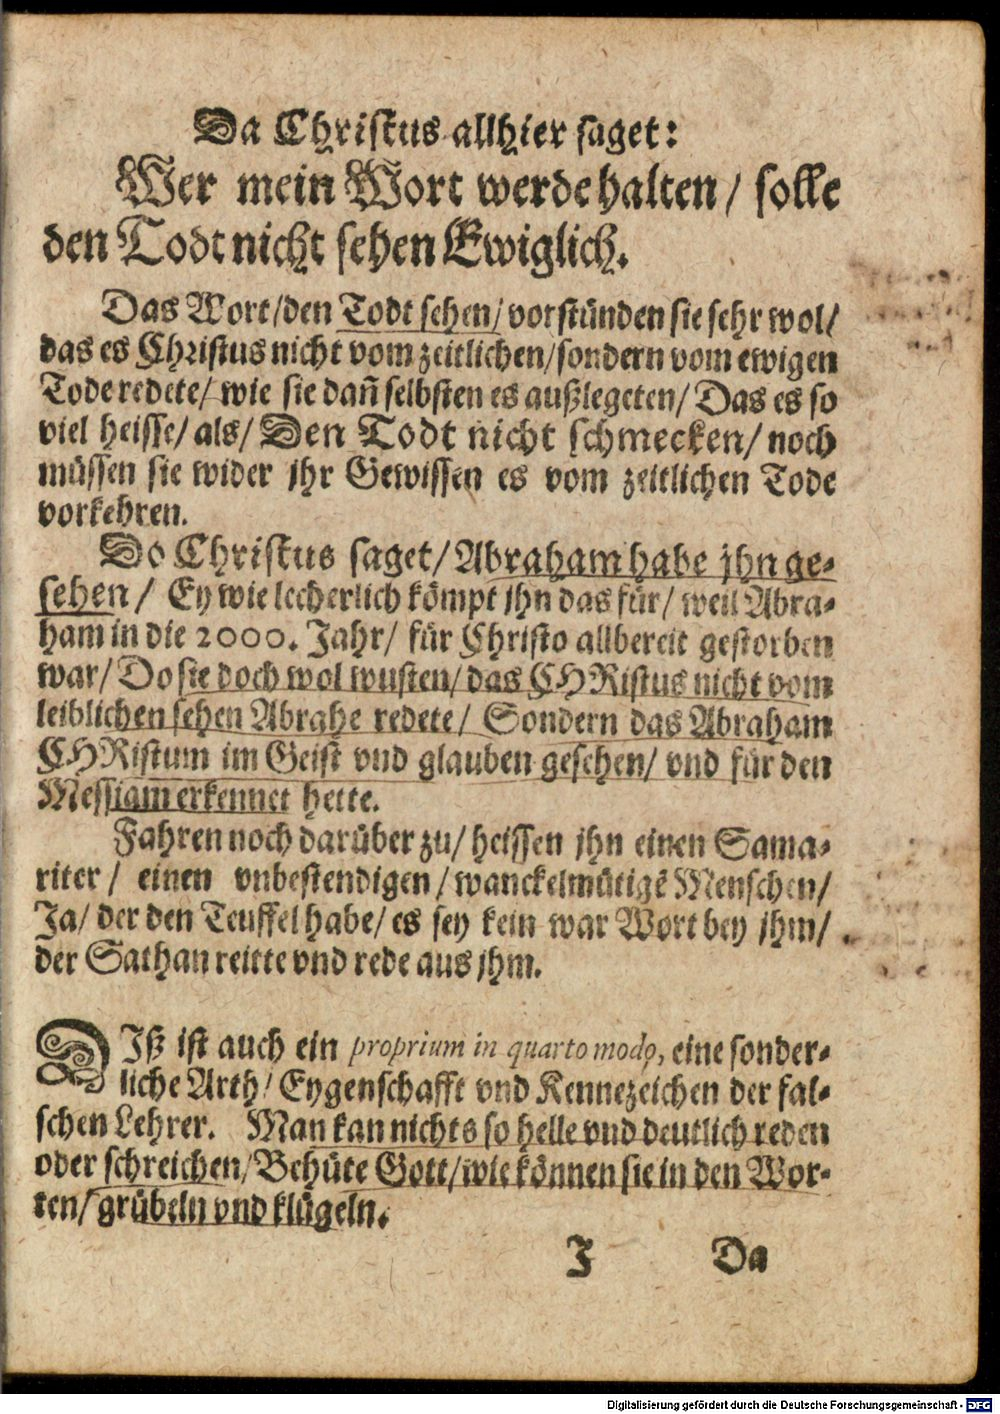 Da Christus allhier saget:
Wer mein Wort werde halten / solle
den Todt nicht sehen Ewiglich.
Das Wort/den Todt sehen/ vorstünden sie sehr wol/
das es Christus nicht vom zeitlichen/sondern vom ewigen
Tode redete/ wie sie dañ selbsten es außlegeten/ Das es so
viel heisse/ als/ Den Todt nicht schmecken/ noch
müssen sie wider jhr Gewissen es vom zeitlichen Tode
vorkehren.
Do Christus saget/ Abraham habe jhn ge-
sehen/ Ey wie lecherlich kömpt jhn das für/ weil Abra-
ham in die 2000. Jahr/ für Christo allbereit gestorben
war/ Do sie doch wol wusten/ das CHRistus nicht vom
leiblichen sehen Abrahe redete/ Sondern das Abraham
CHRistum im Geist vnd glauben gesehen/ vnd für den
Messiam erkennet hette.
Fahren noch darüber zu/ heissen jhn einen Sama-
riter/ einen vnbestendigen/ wanckelmütigē Menschen/
Ja/ der den Teuffel habe/ es sey kein war Wort bey jhm/
der Sathan reitte vnd rede aus jhm.
DIß ist auch ein proprium in quarto modo, eine sonder-
liche Arth/ Eygenschafft vnd Kennezeichen der fal-
schen Lehrer. Man kan nichts so helle vnd deutlich reden
oder schreichen/ Behüte Gott/ wie können sie in den Wor-
ten/ grübeln vnd klügeln.
J Da
Digitalisierung gefördert durch die Deutsche Forschungsgemeinschaft - DFG